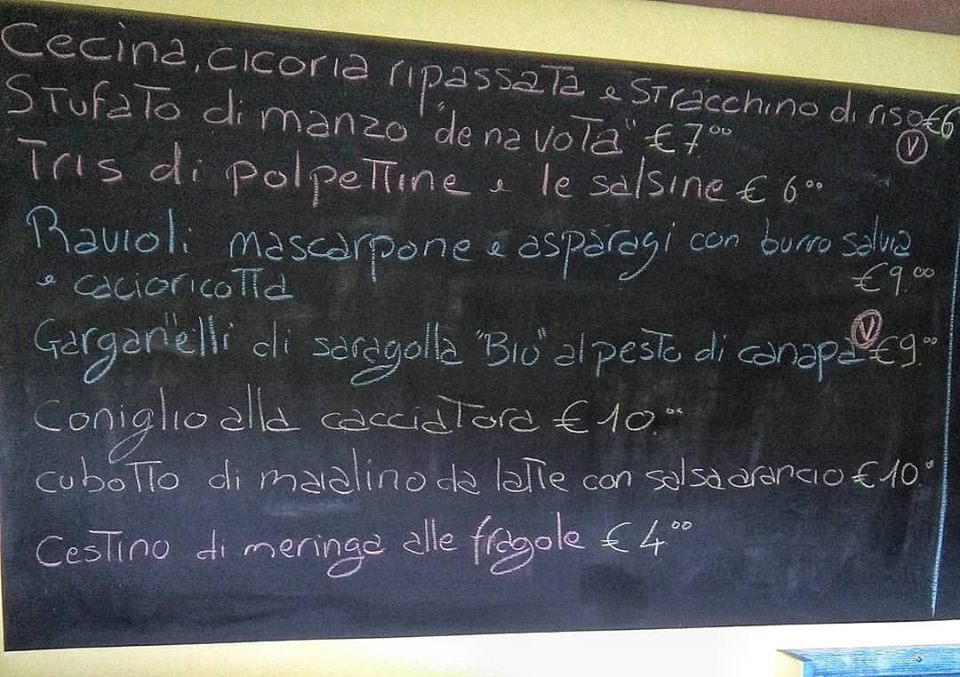 Cecina, cicoria ripassata e stracchino di riso €6
Stufato di manzo "de na vota" €7.00 V
Tris di polpettine e le salsine € 6.00
Ravioli mascarpone e asparagi con burro salvia
e cacioricotta €9.00
Garganelli di saragolla "Bio" al pesto di canapa V €9.00
Coniglio alla cacciatora €10.00
cubotto di maialino da latte con salsa arancio €10.
Cestino di meringa alle fragole € 4.00